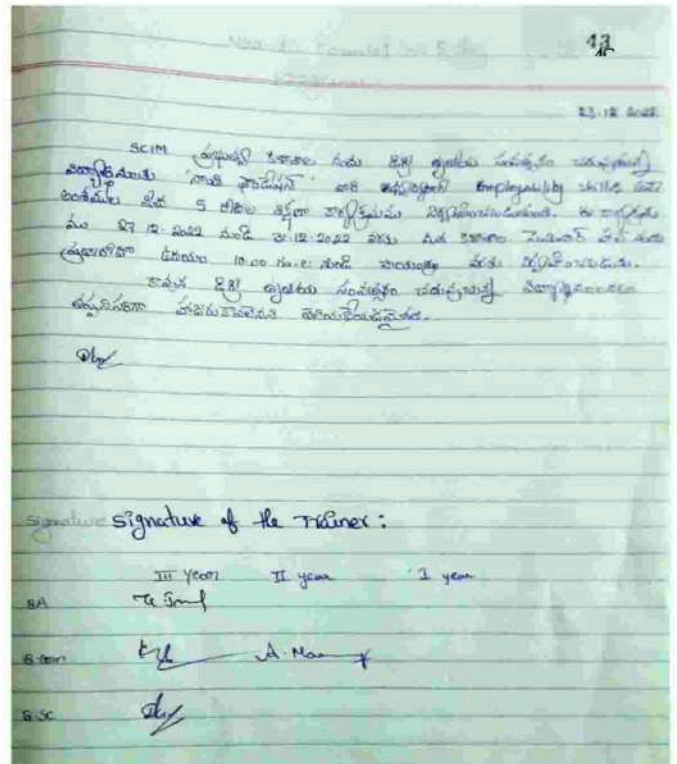 43
23.12.2022
SCIM ప్రభుత్వ కళాశాల నందు డిగ్రీ తృతీయ సంవత్సరం చదువుచున్న
విద్యార్థులకు "నాంది ఫౌండేషన్" వారి ఆధ్వర్యంలో Employability skills అనే
అంశముల మీద 5 రోజుల శిక్షణా కార్యక్రమము నిర్వహించబడుతుంది. ఈ కార్యక్రమ
ము 27.12.2022 నుండి 31.12.2022 వరకు మన కళాశాల సెమినార్ హాల్ నందు
ప్రతిరోజు ఉదయం 10.00 గం.లు నుండి సాయంత్రం వరకు నిర్వహించబడును.
కావున డిగ్రీ తృతీయ సంవత్సరం చదువుచున్న విద్యార్థినీ
తప్పనిసరిగా హాజరుకావలెనని తెలియజేయడమైనది.
signature signature of the Trainer :
III Year II year I year
BA
B.com
B.SC